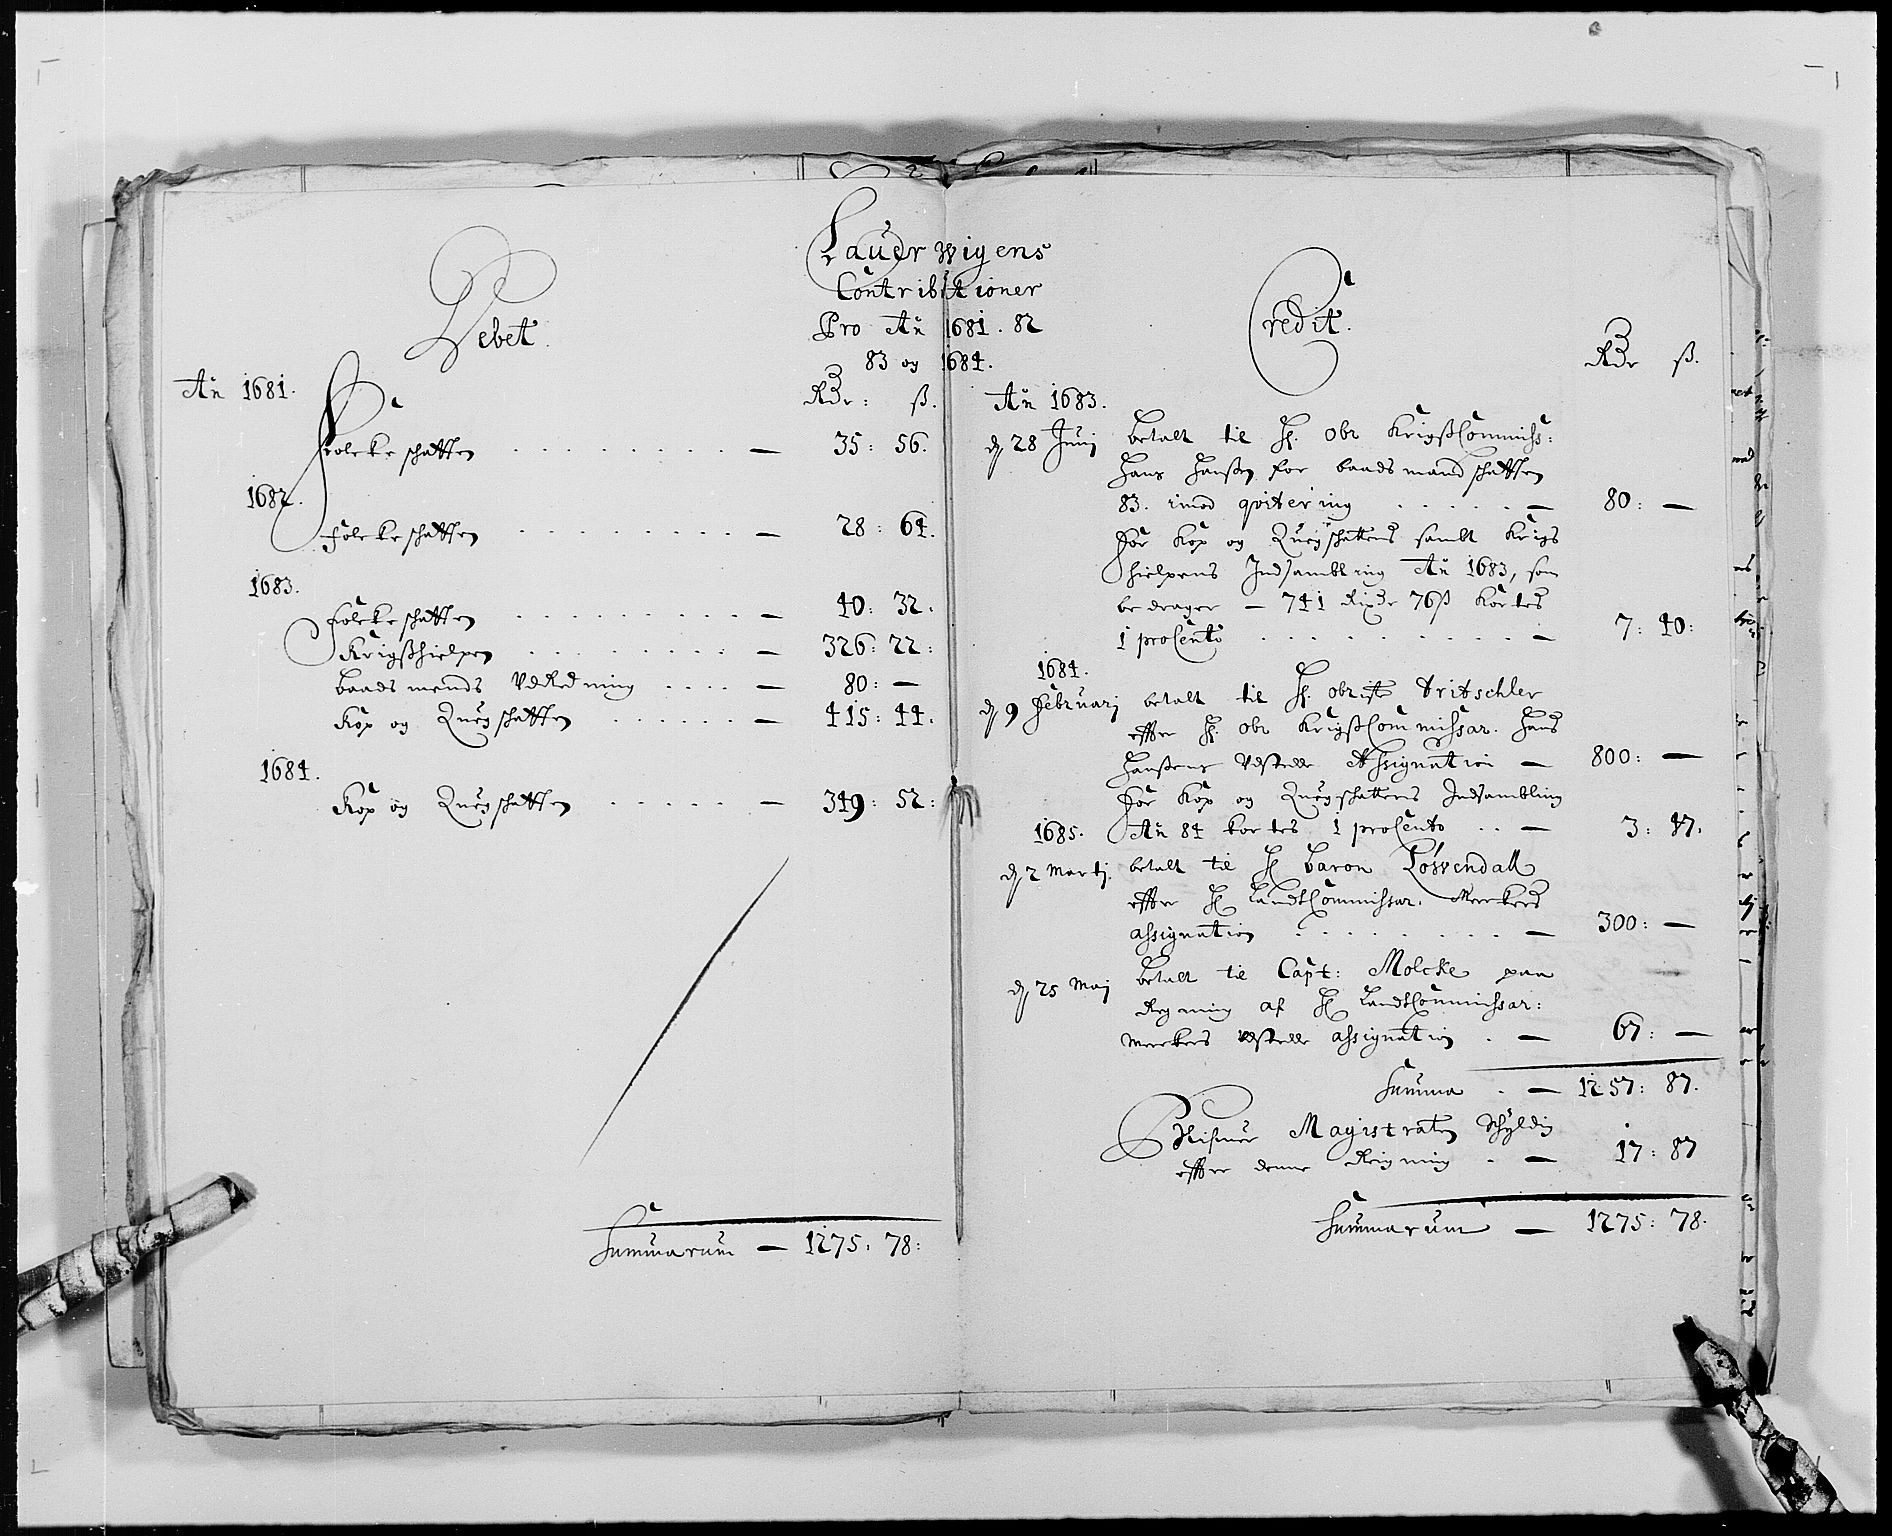 Lauerwigens
Contributioner
Pro Añ 1681. 82
83 og 1684.
Debet.
Rdr: ß.
Añ 1681.
Folcke schatten . . . . . . . . — 35: 56.
1682.
Folcke schatten . . . . . . . . — 28: 64.
1683.
Folcke schatten . . . . . . . . — 40: 32.
Krigßhielpen . . . . . . . — 326: 22:
baadsmends Vdredning . . . . — 80: —
Kop og Quegschatten . . . . . . — 415: 44.
1684.
Kop og Quegschatten . . . . . — 349: 52:
Summarum — 1275. 78:
Credit.
Rdr ß.
Añ 1683.
d 28 Junij betalt til H. obr KrigßCommiss:
Hans Hanßen for baadsmand schatten
83. imod qvitering . . . . . — 80: —
For Kop og Quegschattens sambt Krigs
hielpens Indsambling Añ 1683, som
bedrager — 741 Rixdr 76ß Kortes
1 proCento . . . . . . . . . . — 7: 40:
1684.
d 9 Februarj betalt til H. obrist Tritschler
effter H. obr KrigßCommissar. Hans
Hanßens Vdstede Assignation — 800: —
For Kop og Quegschattens Indsambling
Añ 84 kortes 1 proCento . . — 3: 47.
1685.
d 2 Martj. betalt til H Baron Löwendall
effter H LandtCommissar. Merckers
assignation . . . . . . . . — 300: —
d 25 Maj betalt til Capt: Molcke paa
Regning af H LandtCommissar:
Merckers Vdstede assignation . — 67: —
Summa . — 1257: 87.
Blifuer Magistraten schyldig
effter denne Reigning . — 17: 87
Summarum — 1275: 78.